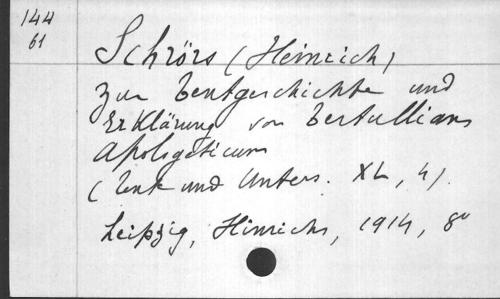 144
61
Schrörs (Heinrich)
Zur Textgeschichte und
Erklärung von Tertullians
Apologeticum
(Texte und Unters. XL, 4).
Leipzig, Hinrichs, 1914, 8°